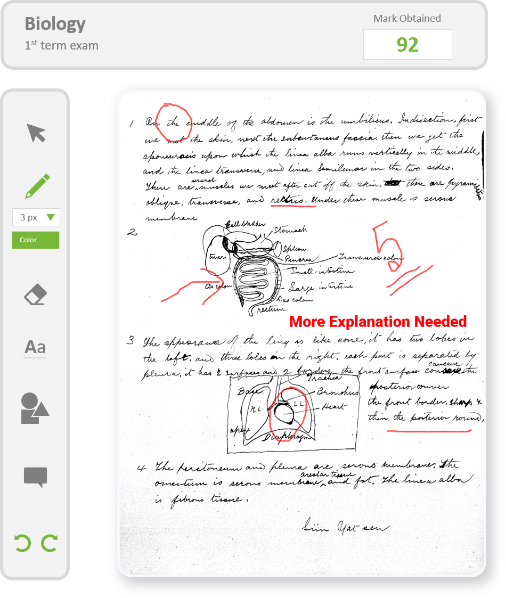 Biology
1st term exam
Mark Obtained
92
3 px
Color
Aa
1 In the middle of the abdomen is the umbilicus. In dissection, first
we meet the skin, next the subcutaneous fascia then we get the
aponeurosis upon which the linea alba runs vertically in the middle
and the linea transversa, and linea semilunar in the two sides.
There are muscles we meet after cut off the skin, these are
oblique, transversus, and rectus. Under these muscle is serous
membrane
2
Gall bladder
Stomach
Spleen
Liver
Pancreas
Transverse colon
Small intestine
As colon
Large intestine
Des colon
rectum
5
More Explanation Needed
3 The appearance of the lung is like cone, it has two lobes in
the left and three lobes in the right, each part is separated by
pleura, it has 2 surfaces and 2 borders, the front surface the
posterior
the front border, sharp &
thin, the posterior round.
Trachea
Base
Bronchus
R.L
L.L
Heart
Apex
Diaphragm
4 The peritoneum and pleura are serous membrane. The
areolar tissue
omentum is serous membrane, and fat, The linea alba
is fibrous tissue.
Sun Yat sen